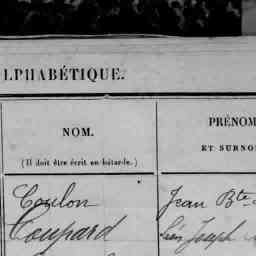 ALPHABÉTIQUE.
NOM.
(Il doit être écrit en bâtarde.)
PRÉNOM
ET SURNO
Coulon
Jean Bte
Coupard
Joseph